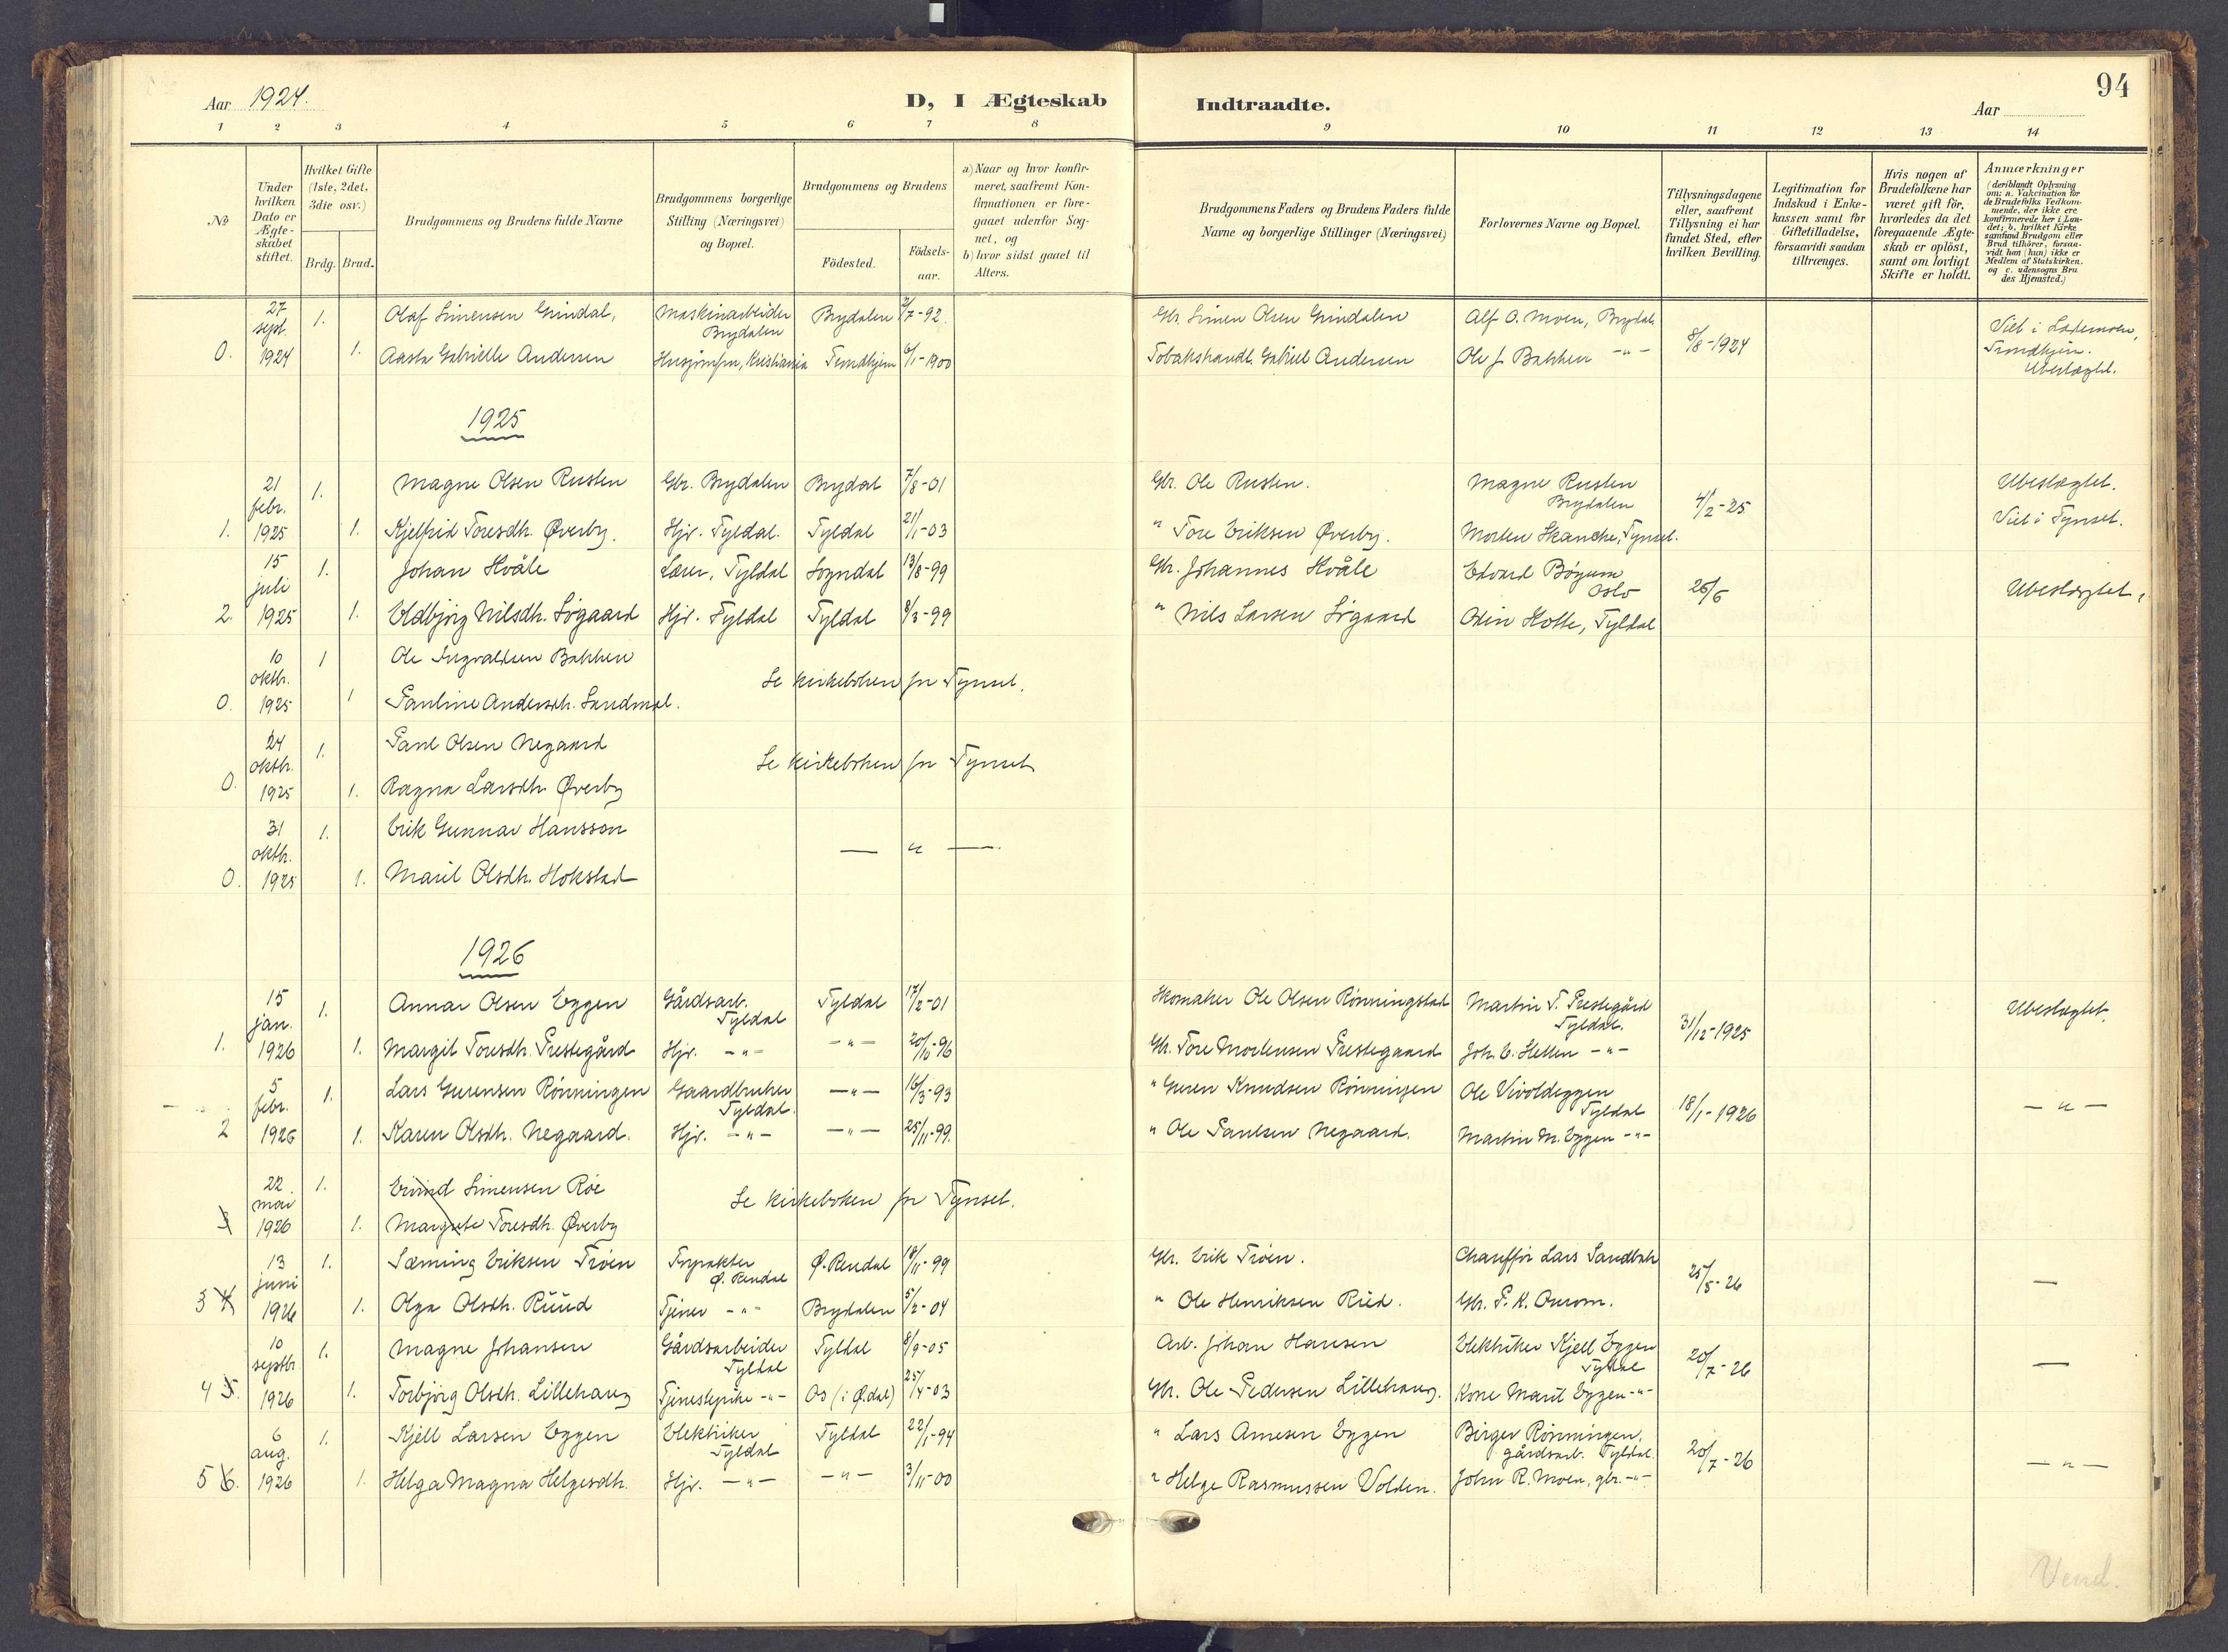 Aar 1924.
D, I Ægteskab Indtraadte.
94
Aar
1 2 3 4 5 6 7 8 9 10 11 12 13 14
No
Under hvilken Dato er Ægte-skabet stiftet.
Hvilket Gifte (1ste, 2det, 3die osv.)
Brdg. Brud.
Brudgommens og Brudens fulde Navne
Brudgommens borgerlige Stilling (Næringsvei) og Bopæl.
Brudgommens og Brudens
Födested.
Födsels-aar.
a) Naar og hvor konfir-meret, saafremt Kon-firmationen er fore-gaaet udenfor Sog-net, og
b) hvor sidst gaaet til Alters.
Brudgommens Faders og Brudens Faders fulde Navne og borgerlige Stillinger (Næringsvei)
Forlovernes Navne og Bopæl.
Tillysningsdagene eller, saafremt Tillysning ei har fundet Sted, efter hvilken Bevilling.
Legitimation for Indskud i Enke-kassen samt for Giftetilladelse, forsaavidt saadan tiltrænges.
Hvis nogen af Brudefolkene har været gift för, hvorledes da det foregaaende Ægte-skab er oplöst, samt om lovligt Skifte er holdt.
Anmærkninger
(deriblandt Oplysning om: a. Vakcination for de Brudefolks Vedkom-mende, der ikke ere konfirmerede her i Lan-det; b. hvilket Kirke samfund Brudgom eller Brud tilhörer, forsaa-vidt han (hun) ikke er Medlem af Statskirken. og c. udensogns Bru des Hjemsted.)
27 sept. 1924 1. Olaf Simensen Grindal, Maskinarbeider Brydalen Brydalen /7-92 Gbr. Simen Olsen Grindalen Alf O. Moen, Brydal. 8/8-1924 Viet i Lademoen, Trondhjem. Ubeslægtet.
0. 1. Aasta Gabrielle Andersen Husjomfru, Kristiania Trondhjem 6/1-1900 Tobakshandl. Gabriel Andersen Ole J. Bakken -"-
1925
21 febr. 1925 1. Magne Olsen Rusten Gbr. Brydalen Brydal 7/8-01 Gbr. Ole Rusten. Magne Rusten Brydalen 4/2-25 Ubeslægtet. Viet i Tynset.
1. 1. Kjelfrid Toresdh. Øverby. Hjv. Tyldal. Tyldal 21/1-03 " Tore Eriksen Øverby. Morten Skancke, Tynset.
15 juli 1925 1. Johan Hvåle Lærer, Tyldal Sogndal 13/8-99 Gbr. Johannes Hvåle Edvard Bøyum Oslo 26/6 Ubeslægtet.
2. 1. Oldbjørg Nilsdh. Søgaard Hjv. Tyldal Tyldal 8/3-99 " Nils Larsen Søgaard Odin Kotte, Tyldal
10 oktbr. 1925 1 Ole Ingvaldsen Bakken
Se kirkeboken for Tynset.
0. 1 Pauline Andersdh. Sandmæl.
24 oktbr. 1925 1. Paul Olsen Negaard
Se kirkeboken for Tynset
0. 1. Ragna Larsdh. Øverby
31 oktbr. 1925 1. Erik Gunnar Hansson
— " —
0. 1. Marit Olsdh. Hokstad
1926
15 jan. 1926 1. Annar Olsen Eggen Gårdsarb. Tyldal Tyldal 17/2-01 Skomaker Ole Olsen Rønningstad Martin T. Prestegård Tyldal. 31/12-1925 Ubeslægtet.
1. 1. Margit Toresdh. Prestegård Hjv. -"- -"- 20/10-96 Gbr. Tore Mortensen Prestegaard Joh. E. Hellen -"-
5 febr. 1926 1. Lars Gurensen Rønningen Gaardbruker Tyldal. -"- 16/3-93 " Guren Knudsen Rønningen Ole Vivoldeggen Tyldal 18/1-1926 -"-
2 1. Karen Olsdh. Negaard. Hjv. -"- -"- 25/11-99. " Ole Paulsen Negaard. Martin M. Eggen -"-
22 mai 1926 1. Eivind Simensen Røe
Se kirkeboken for Tynset.
3 1. Margrete Toresdh. Øverby
13 juni 1926 1. Sæming Eriksen Trøen Forpakter Ø. Rendal Ø. Rendal 18/11-99 Gbr. Erik Trøen. Chauffør Lars Sandbak 25/5-26 —
3 4 1. Olga Olsdh. Ruud Tjener -"- Brydalen 5/2-04 " Ole Henriksen Rud. Gbr. P. K.
10 septbr 1926 1. Magne Johansen Gårdsarbeider Tyldal Tyldal 8/9-05 Arb. Johan Hansen Elektriker Kjell Eggen Tyldal 20/7-26 —
4 5. 1. Torbjørg Olsdh. Lillehaug Tjenestepike -"- Os (i Ø.dal) 25/4-03 Gbr. Ole Pedersen Lillehaug. Kone Marit Eggen -"-
6 aug. 1926 1. Kjell Larsen Eggen Elektriker Tyldal Tyldal 22/1-94 " Lars Arnesen Eggen Birger Rønningen, gårdsarb. Tyldal. 20/7-26 -"-
5 6. 1. Helga Magna Helgesdh. Hjv. -"- -"- 3/11-00 " Helge Rasmussen Volden. John R. Moen, gbr. -"-
Vend.